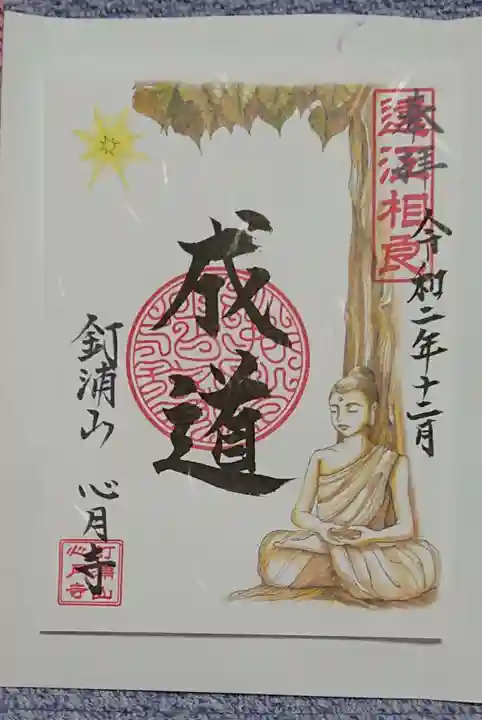 奉拝
遠州相良
令和二年十二月
成道
釘浦山 心月寺
釘浦山
心月寺